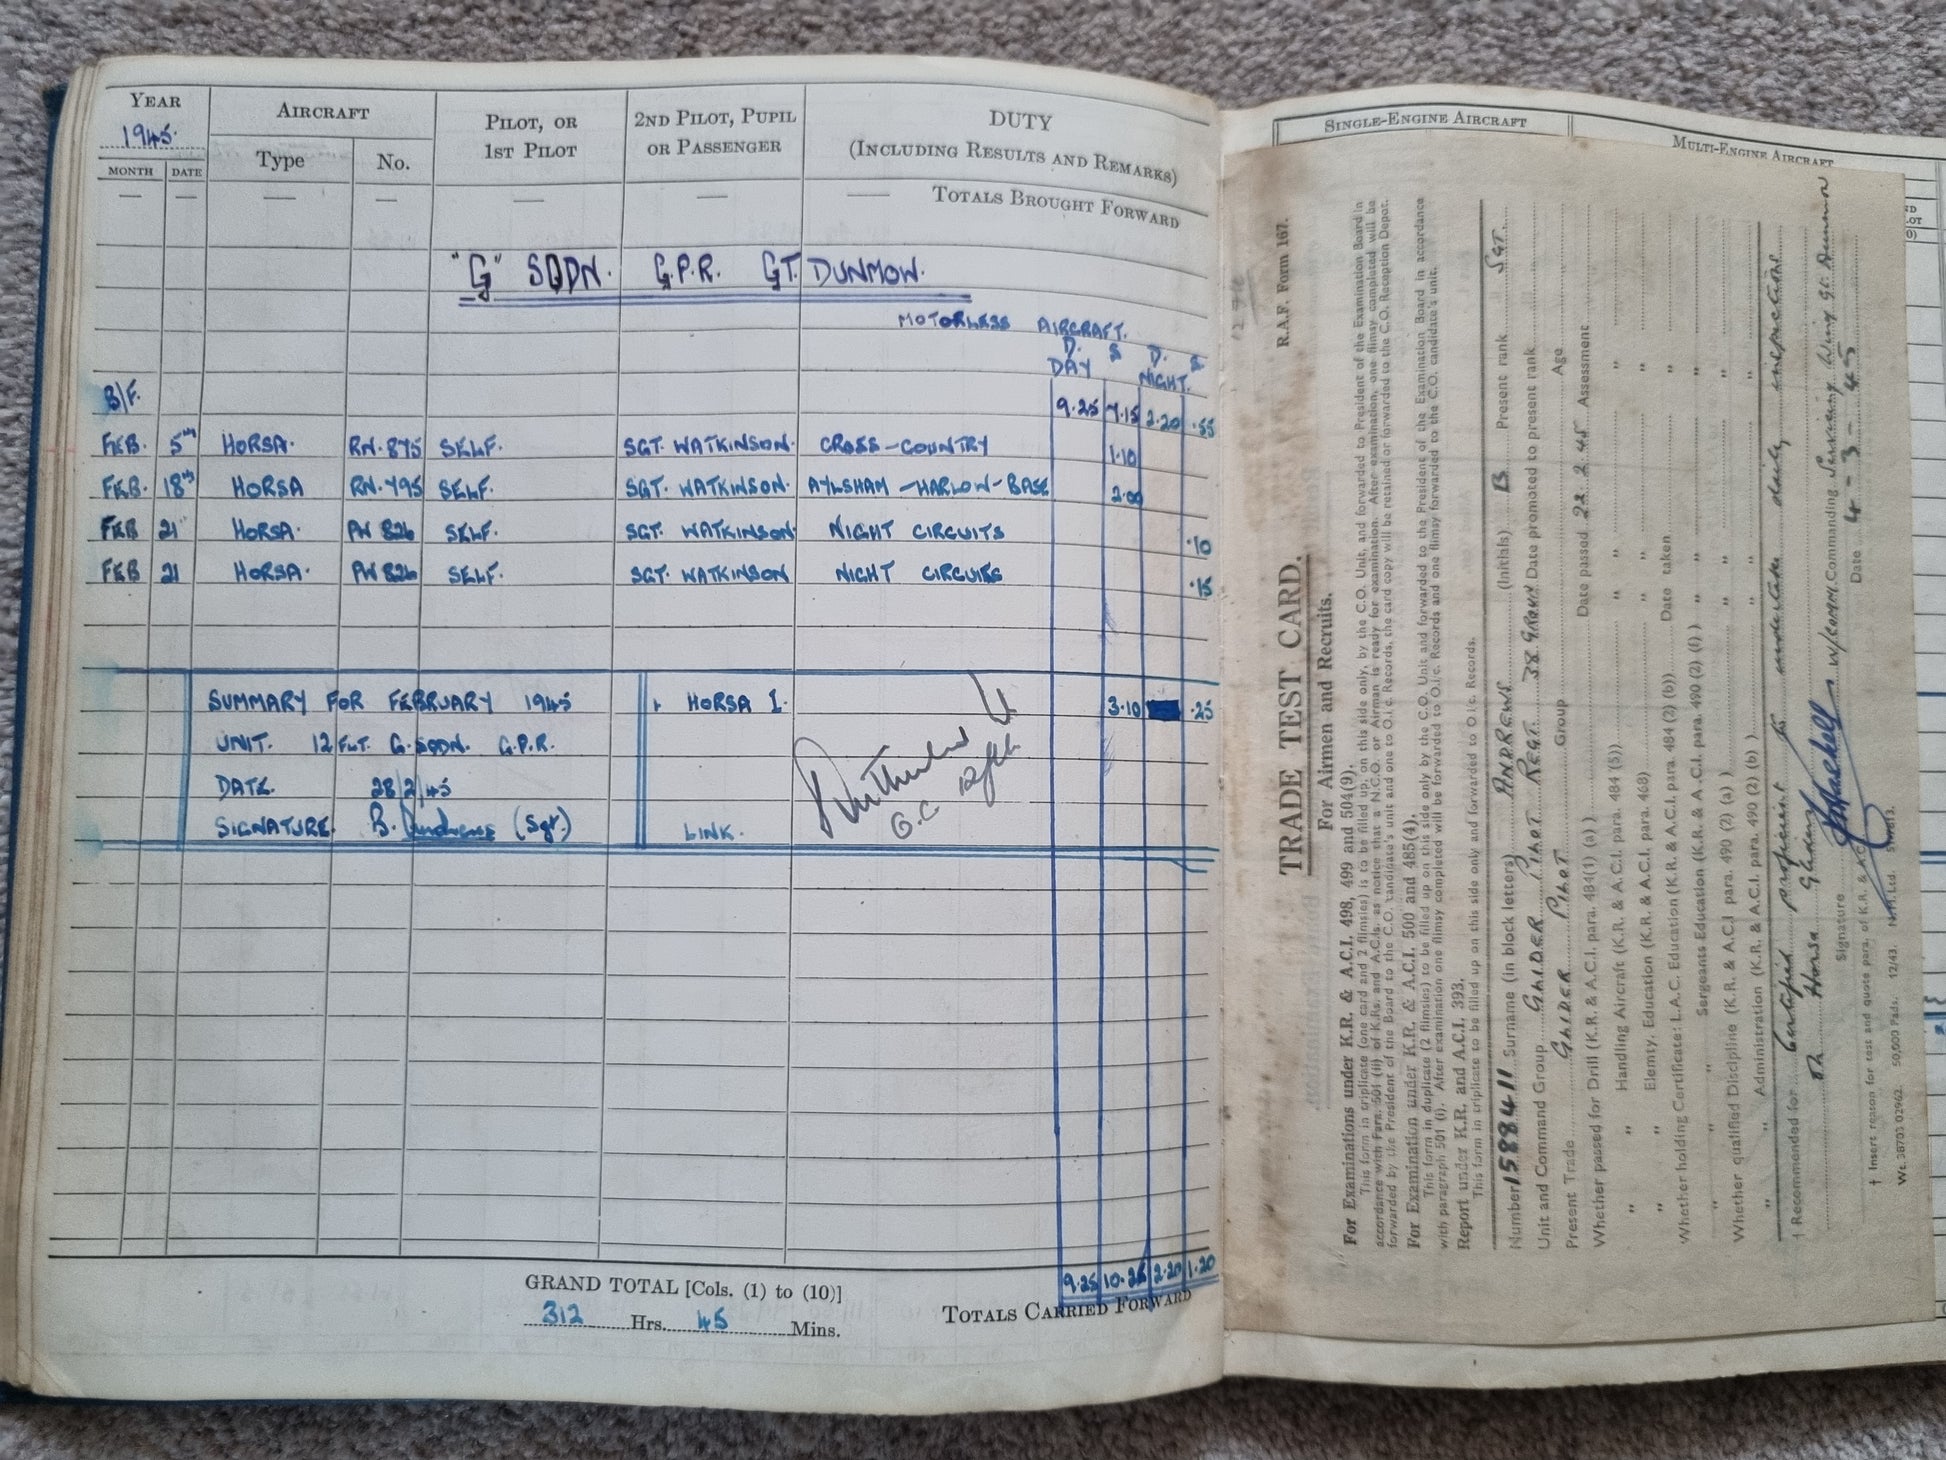 YEAR AIRCRAFT PILOT, OR 1ST PILOT 2ND PILOT, PUPIL OR PASSENGER DUTY (INCLUDING RESULTS AND REMARKS)
1945. Type No.
MONTH DATE
— — — — — — TOTALS BROUGHT FORWARD
"G" SQDN. G.P.R. GT. DUNMOW.
MOTORLESS AIRCRAFT.
D. S D. S
DAY NIGHT.
B/F. 9.25 7.15 2.20 .55
FEB. 5TH HORSA. RN.875 SELF. SGT. WATKINSON. CROSS-COUNTRY 1.10
FEB. 18TH HORSA RN.795 SELF. SGT. WATKINSON. AYLSHAM-HARLOW-BASE 2.00
FEB 21" HORSA. PW 826 SELF. SGT. WATKINSON. NIGHT CIRCUITS .10
FEB 21 HORSA. PW 826 SELF. SGT. WATKINSON NIGHT CIRCUITS .15
SUMMARY FOR FEBRUARY 1945 1 HORSA I. 3.10 .25
UNIT. 12 FLT. G. SQDN. G.P.R.
DATE. 28/2/45
SIGNATURE. B. Andrews (Sgt.) LINK.
O.C. 12 flt
9.25 10.25 2.20 1.20
GRAND TOTAL [Cols. (1) to (10)]
312 Hrs. 45 Mins.
TOTALS CARRIED FORWARD
SINGLE-ENGINE AIRCRAFT MULTI-ENGINE AIRCRAFT
R.A.F. Form 167.
TRADE TEST CARD.
For Airmen and Recruits.
For Examinations under K.R. & A.C.I. 498, 499 and 504(9).
This form in triplicate (one card and 2 flimsies) is to be filled up, on this side only, by the C.O. Unit, and forwarded to President of the Examination Board in
accordance with Para. 501 (ii) of K.Rs. and A.C.Is. as notice that a N.C.O. or Airman is ready for examination. After examination, one flimsy completed will be
forwarded by the President of the Board to the C.O. candidate's unit and one to O. i/c. Records, the card copy will be retained or forwarded to the C.O. Reception Depot.
For Examination under K.R. & A.C.I. 500 and 485(4).
This form in duplicate (2 flimsies) to be filled up on this side only by the C.O. Unit and forwarded to the President of the Examination Board in accordance
with paragraph 501 (i). After examination one flimsy completed will be forwarded to O. i/c. Records and one flimsy forwarded to the C.O. candidate's unit.
Report under K.R. and A.C.I. 393.
This form in triplicate to be filled up on this side only and forwarded to O. i/c. Records.
Number 15884411 Surname (in block letters) ANDREWS (Initials) B Present rank SGT.
Unit and Command Group GLIDER PILOT REGT. 38 GROUP Date promoted to present rank
Present Trade GLIDER PILOT Group Age
Whether passed for Drill (K.R. & A.C.I. para. 484(1) (a) ) Date passed 22.2.45 Assessment
" " Handling Aircraft (K.R. & A.C.I. para. 484 (5)) " " "
" " Elemty. Education (K.R. & A.C.I. para. 468) " " "
Whether holding Certificate: L.A.C. Education (K.R. & A.C.I. para. 484 (3) (b)) Date taken "
" " Sergeants Education (K.R. & A.C.I. para. 490 (2) (f) ) " " "
Whether qualified Discipline (K.R. & A.C.I para. 490 (2) (a) ) " " "
" " Administration (K.R. & A.C.I. para. 490 (2) (b) ) " " "
† Recommended for Certified proficient to undertake daily inspections
on Horsa Gliders
Signature W/Comm. Commanding Servicing Wing Gt. Dunmow
Date 4-3-45
† Insert reason for test and quote para. of K.R. & A.C.I.
Wt. 38703 02962. 50,000 Pads. 12/43.